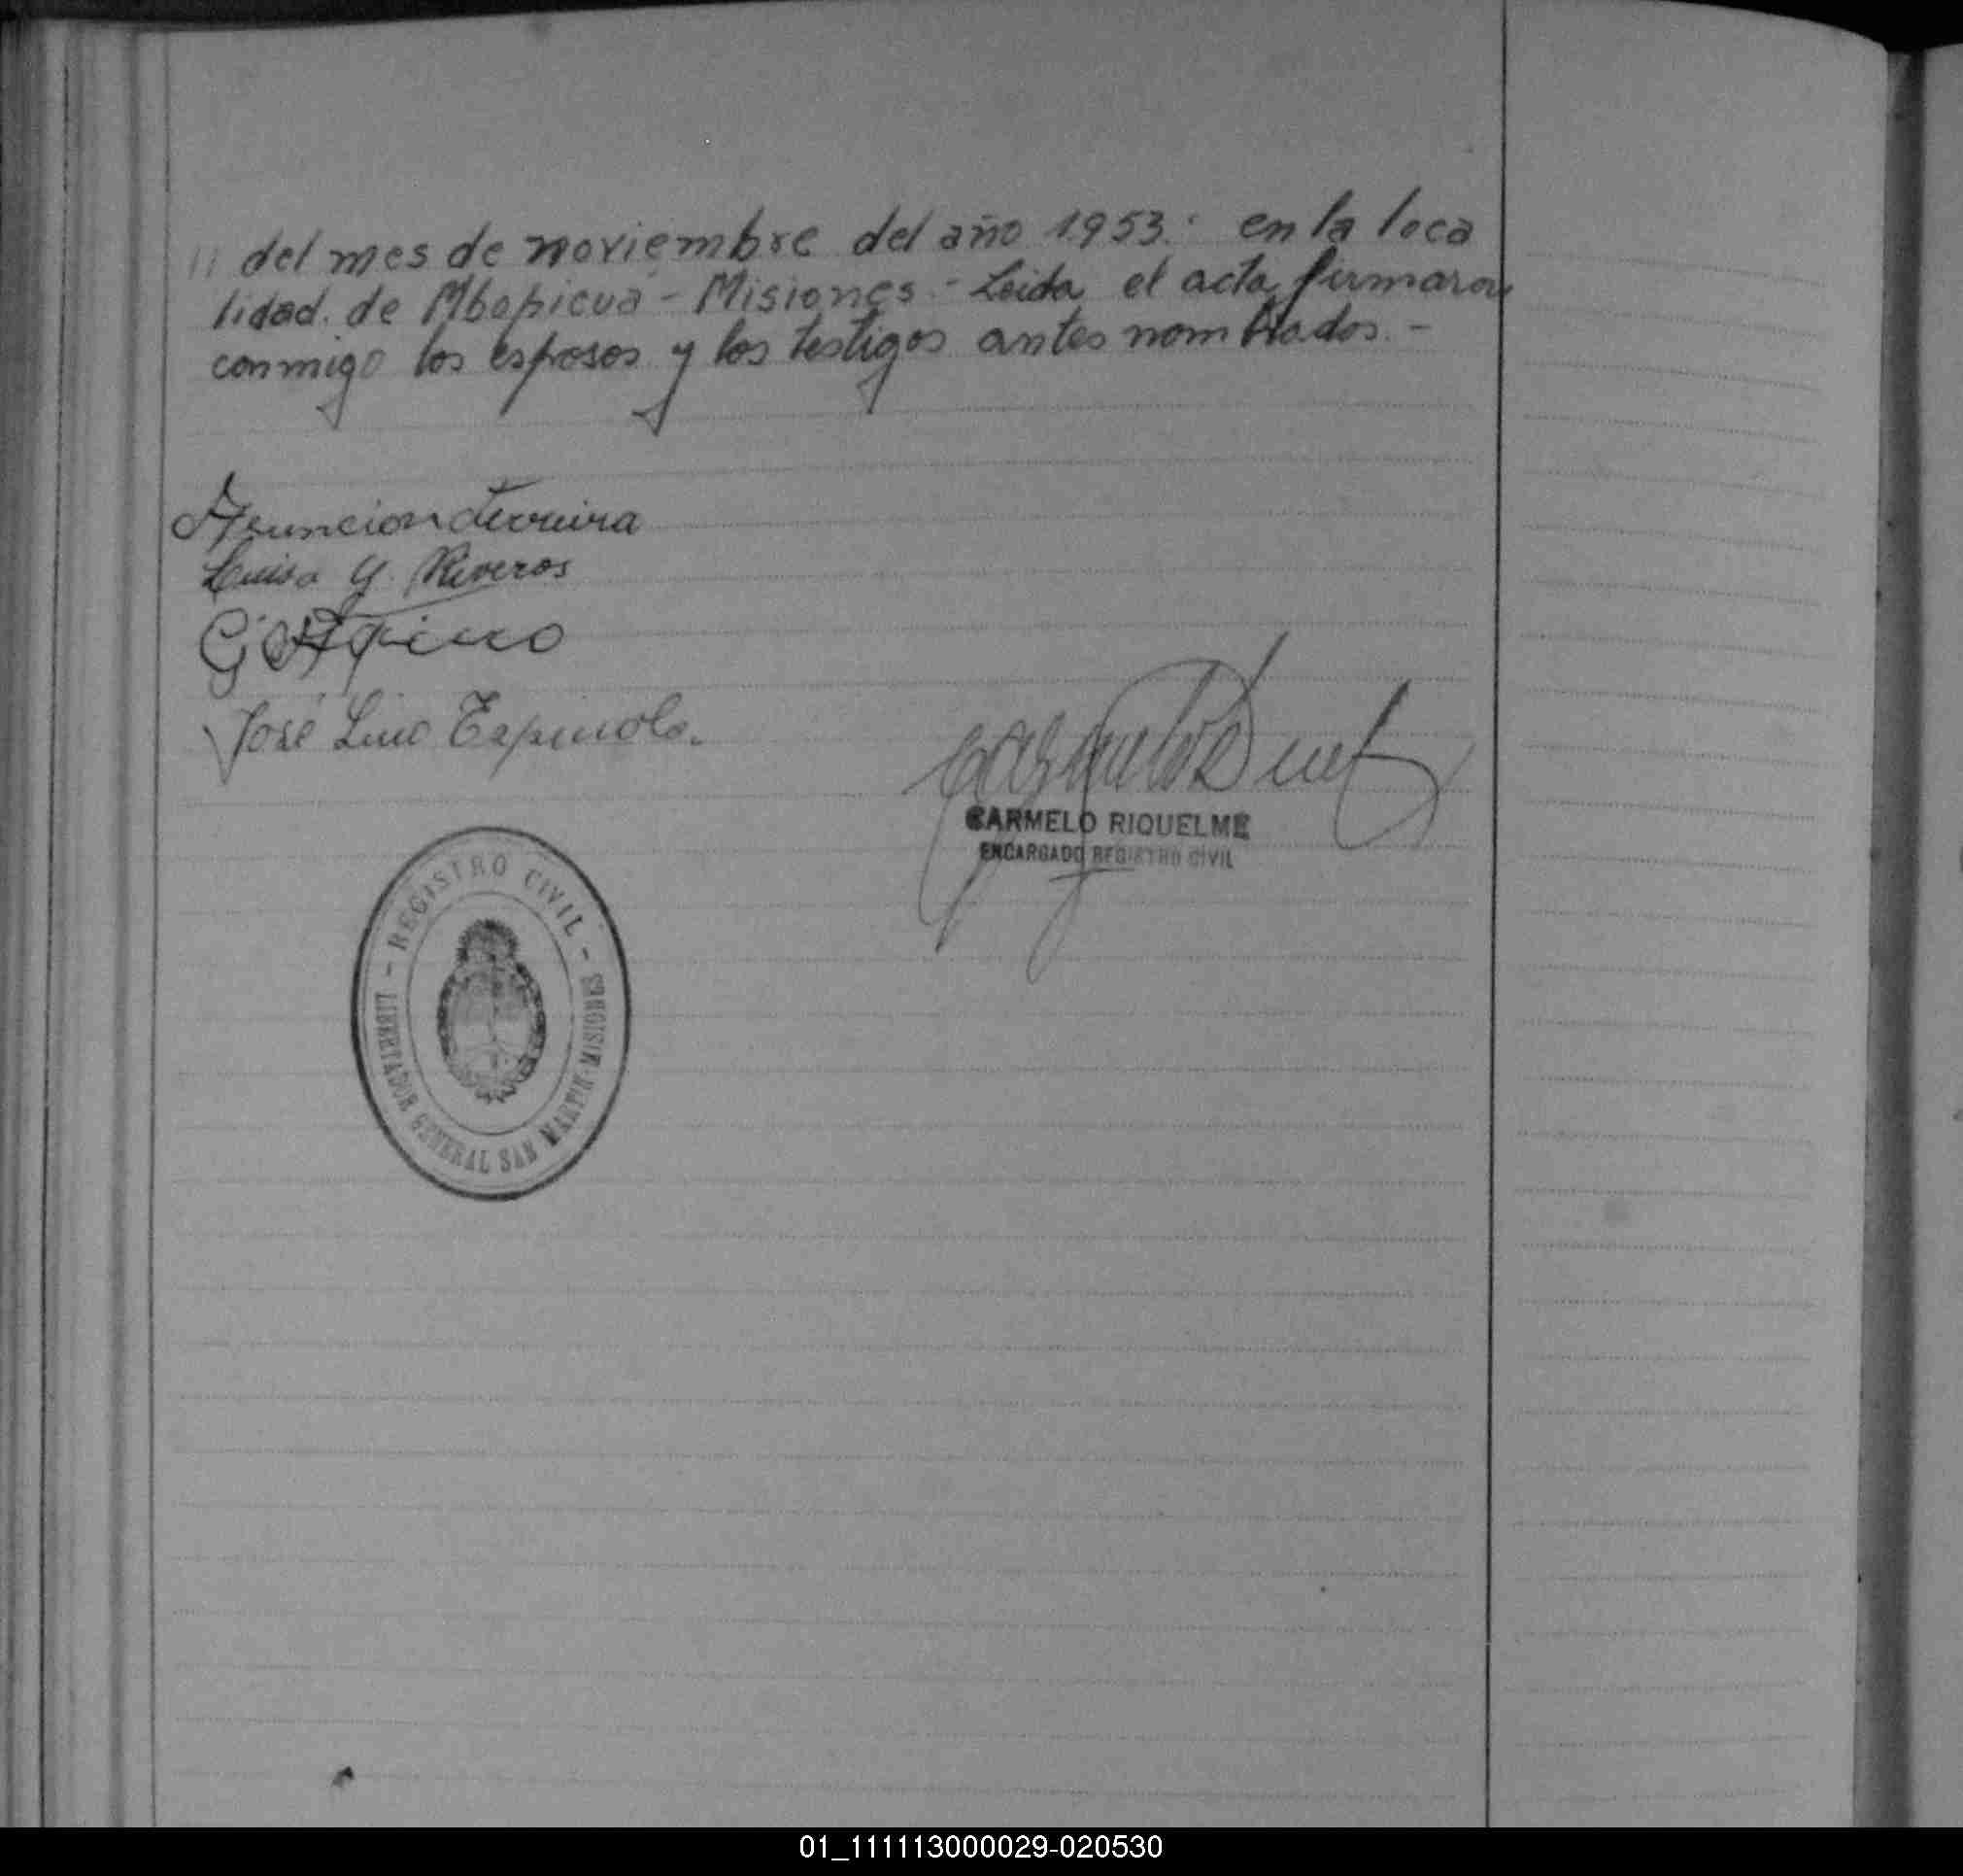 // del mes de noviembre del año 1953: en la loca
lidad. de Mbopicuá - Misiones.- Leida el acta firmaron
conmigo los esposos y los testigos antes nombrados.-
Asuncion Ferreira
Luisa Y. Riveros
José Lino Espinola.
CARMELO RIQUELME
ENCARGADO REGISTRO CIVIL
- REGISTRO CIVIL -
LIBERTADOR GENERAL SAN MARTIN-MISIONES
01_111113000029-020530